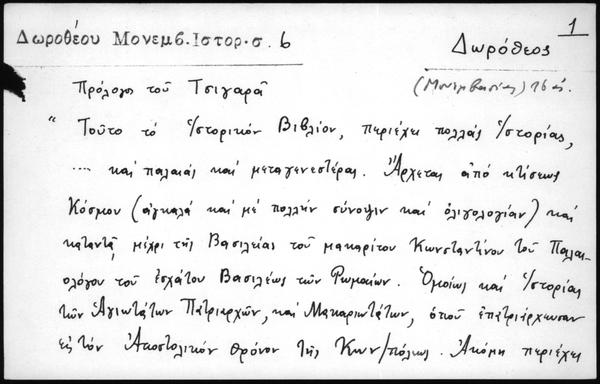 1
Δωροθέου Μονεμβ. Ιστορ. σ. 6
Δωρόθεος
(Μονεμβασίας) 16 αἰ.
Πρόλογος τοῦ Τσιγαρᾶ
"Τοῦτο τό Ἱστορικόν Βιβλίον, περιέχει πολλάς Ἱστορίας,
.... καί παλαιάς καί μεταγενεστέρας. Ἄρχεται ἀπό κτίσεως
Κόσμου (ἀγκαλά καί μέ πολλήν σύνοψιν καί ὀλιγολογίαν) καί
καταντᾶ, μέχρι τῆς Βασιλείας τοῦ μακαρίτου Κωνσταντίνου τοῦ Παλαι-
ολόγου τοῦ ἐσχάτου Βασιλέως τῶν Ρωμαίων. Ὁμοίως καί Ἱστορίας
τῶν Ἁγιωτάτων Πατριαρχῶν, καί Μακαριωτάτων, ὁποῦ ἐπατριάρχευσαν
εἰς τόν Ἀποστολικόν θρόνον τῆς Κων/πόλεως. Ἀκόμη περιέχει